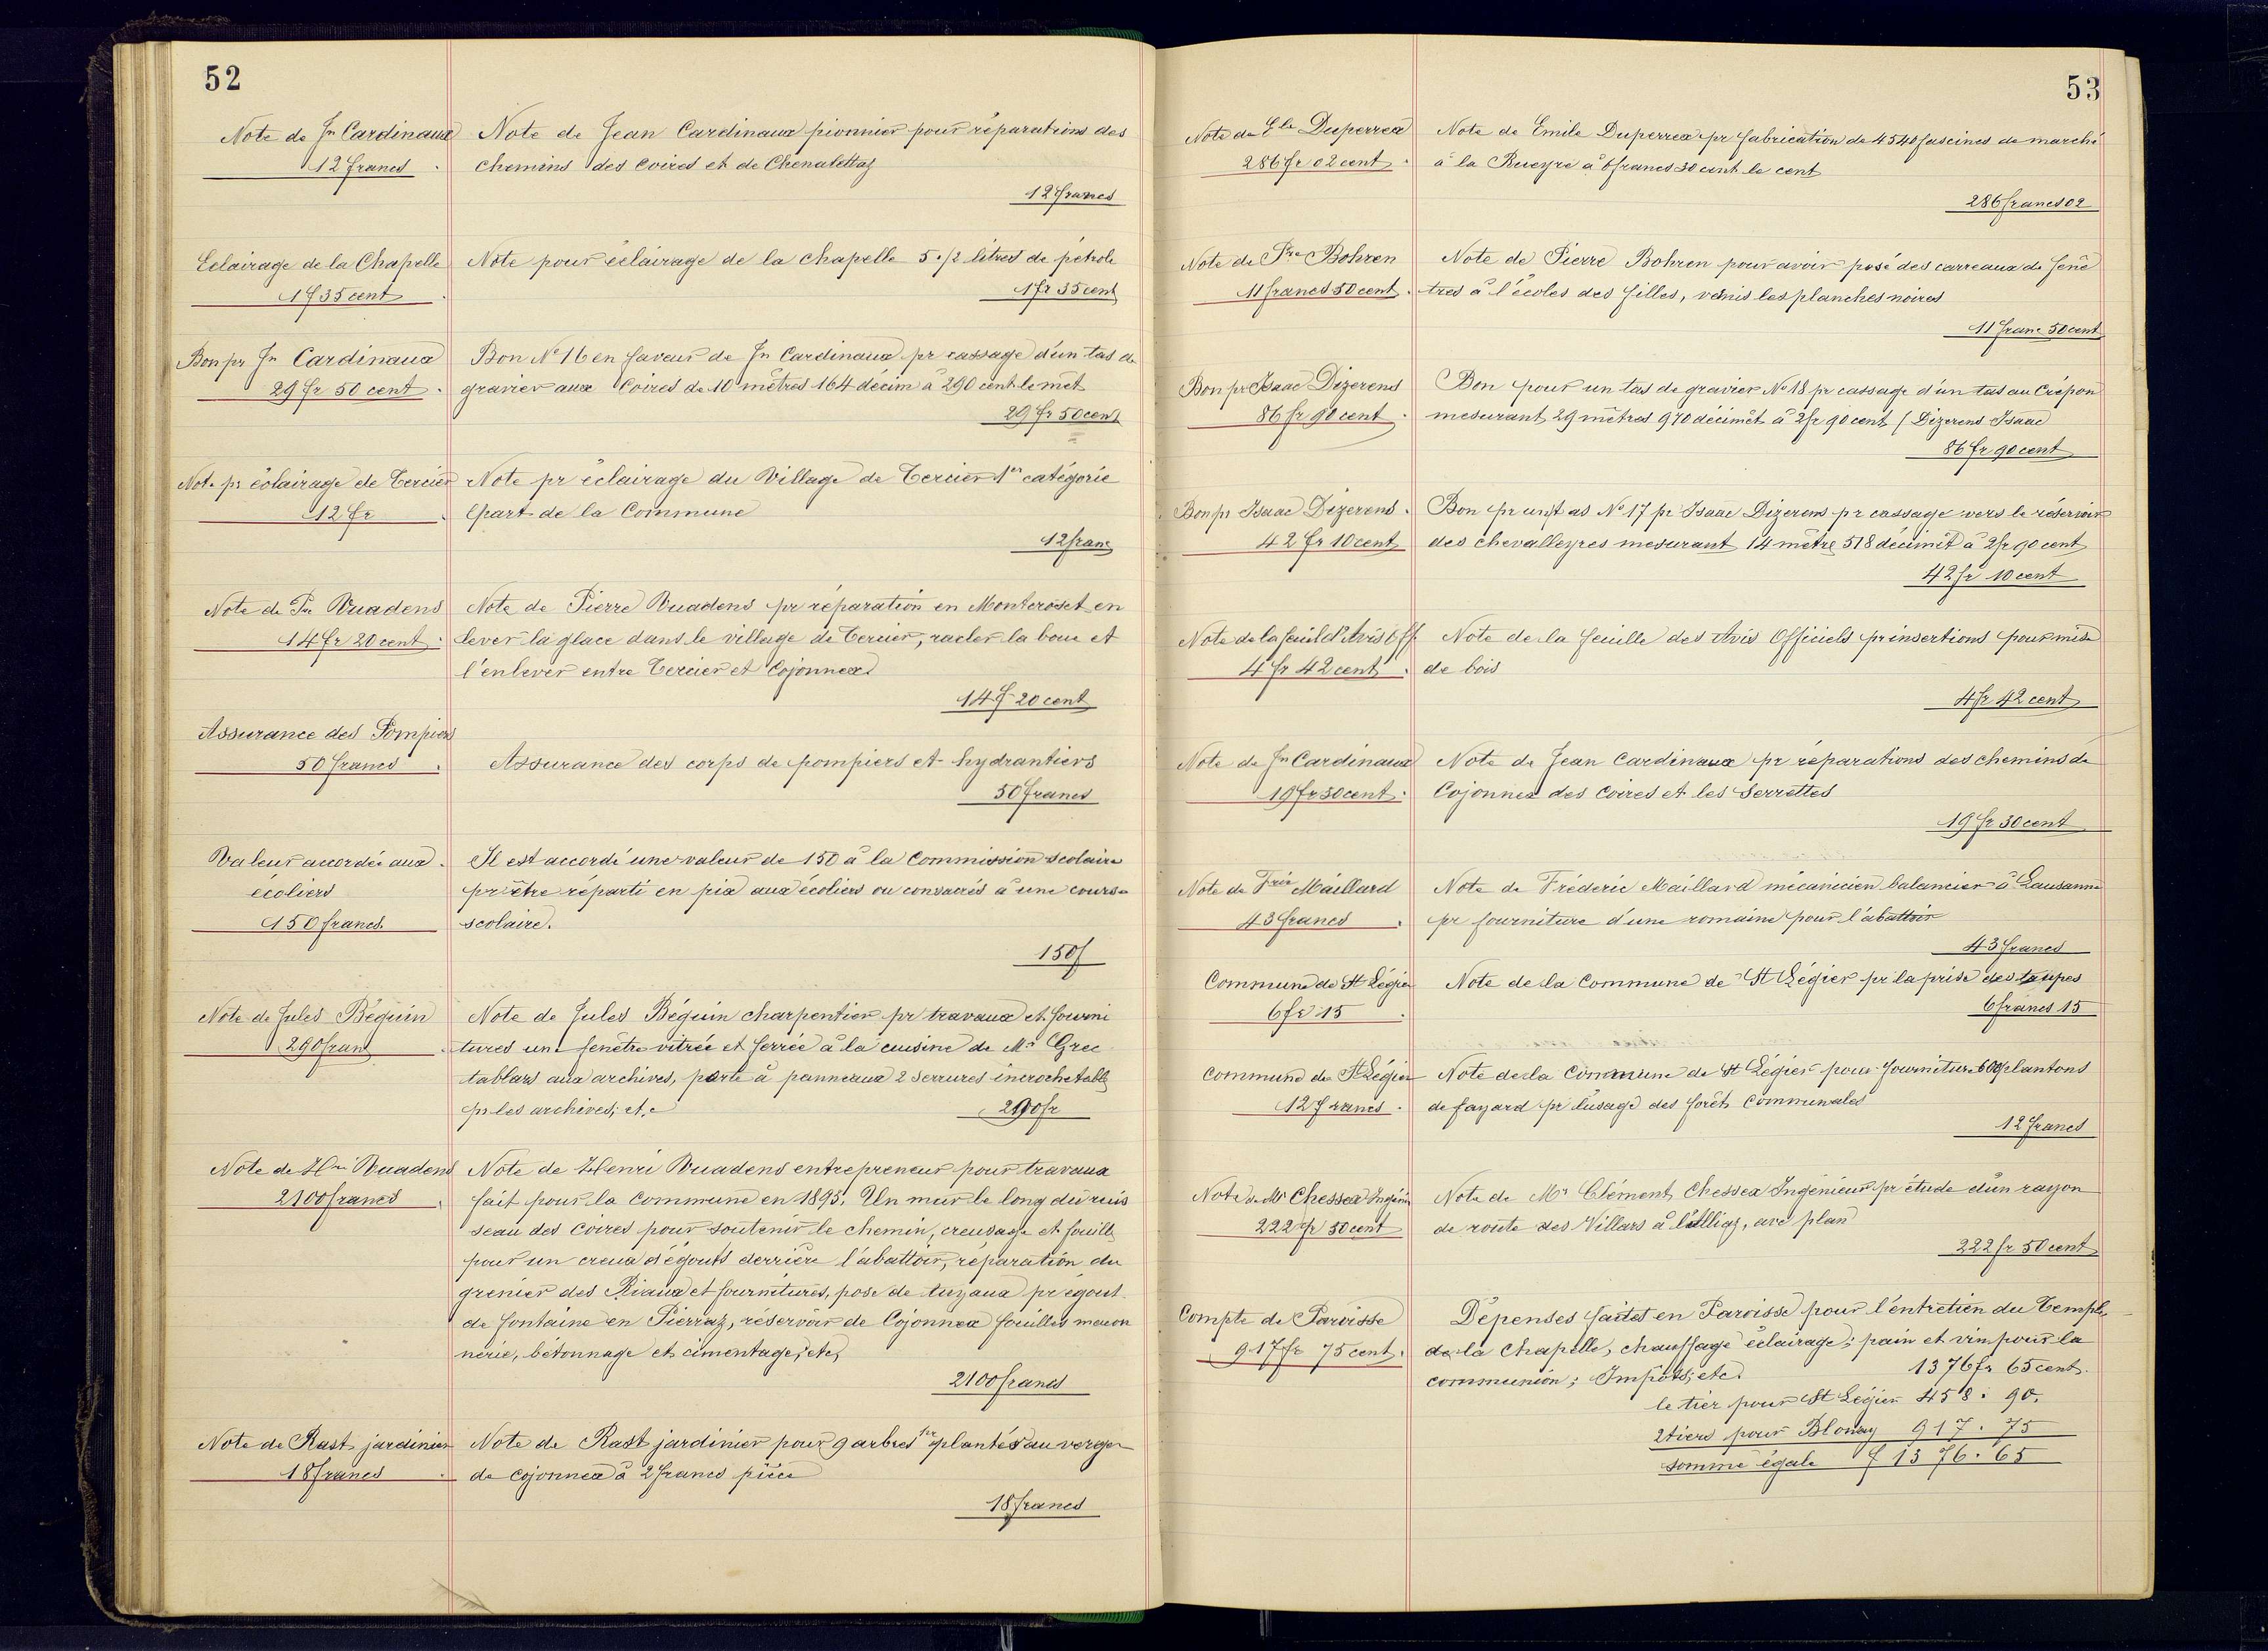 52
Note de Jn Cardinaux
12 francs
Note de Jean Cardinaux pionnier pour réparations des
chemins des Coires et de Chenalettaz
12 francs
Eclairage de la Chapelle
1 f 35 cent
Note pour éclairage de la chapelle 5 1/2 litres de pétrole
1 fr 35 cent
Bon pr Jn Cardinaux
29 fr 50 cent
Bon No 16 en faveur de Jn Cardinaux pr cassage d'un tas de
gravier aux Coires de 10 mètres 164 décim à 290 cent le mèt
29 fr 50 cent
Note pr éclairage de Tercier
12 fr
Note pr éclairage du Village de Tercier 1er catégorie
part de la Commune
12 franc
Note de Pre Vuadens
14 fr 20 cent
Note de Pierre Vuadens pr réparation en Montcroset en
lever la glace dans le village de Tercier, racler la boue et
l'enlever entre Tercier et Cojonnex
14 f 20 cent
Assurance des Pompiers
50 francs
Assurance des corps de pompiers et hydrantiers
50 francs
Valeur accordée aux
écoliers
150 francs
Il est accordé une valeur de 150 à la Commission scolaire
pr être réparti en pix aux écoliers ou consacrés à une course
scolaire.
150 f
Note de Jules Béguin
290 fran
Note de Jules Béguin charpentier pr travaux et fourni
tures une fenêtre vitrée et ferrée à la cuisine de Mr Grec
tablars aux archives, porte à panneaux 2 serrures incrochetabls
pr les archives; etc
290 fr
Note de Hri Vuadens
2100 francs
Note de Henri Vuadens entrepreneur pour travaux
fait pour la Commune en 1895, Un mur le long du ruis
seau des Coires pour soutenir le chemin, creusage et fouille
pour un creux d'égouts derrière l'abattoir, réparation du
grenier des Riaux et fournitures, pose de tuyaux pr égout
de fontaine en Pierraz, réservoir de Cojonnex fouilles macon
nerie, bétonnage et cimentage, etc,
2100 francs
Note de Rast jardinier
18 francs
Note de Rast jardinier pour 9 arbres plantés au verger
de Cojonnex à 2 francs pièce
18 francs
53
Note de Ele Duperrex
286 fr 02 cent
Note de Emile Duperrex pr fabrication de 4540 fascines de marché
à la Rueyre à 6 francs 30 cent le cent
286 francs 02
Note de Pre Bohren
11 francs 50 cent
Note de Pierre Bohren pour avoir posé des carreaux de fenê
tres à l'écoles des filles, vernis les planches noires
11 franc 50 cent
Bon pr Isaac Dizerens
86 fr 90 cent
Bon pour un tas de gravier No 18 pr cassage d'un tas au Crépon
mesurant 29 mètres 970 décimèt à 2 fr 90 cent / Dizerens Isaac
86 fr 90 cent
Bon pr Isaac Dizerens
42 fr 10 cent
Bon pr un tas No 17 pr Isaac Dizerens pr cassage vers le réservoir
des chevalleyres mesurant 14 mètre 518 décimèt à 2 fr 90 cent
42 fr 10 cent
Note de la feuil d'Avis Off
4 fr 42 cent
Note de la feuille des Avis Officiels pr insertions pour mise
de bois
4 fr 42 cent
Note de Jn Cardinaux
19 fr 30 cent
Note de Jean Cardinaux pr réparations des chemins de
Cojonnex des Coires et les Serrettes
19 fr 30 cent
Note de Fréd Maillard
43 francs
Note de Fréderic Maillard mécanicien balancier à Lausanne
pr fourniture d'une romaine pour l'abattoir
43 francs
Commune de St Légier
6 fr 15
Note de la Commune de St Légier pr la prise des taupes
6 francs 15
Commune de St Légier
12 francs
Note de la Commune de St Légier pour fourniture 600 plantons
de fayard pr l'usage des forêts Communales
12 francs
Note de Mr Chessex Ingénir
222 fr 50 cent
Note de Mr Clément Chessex Ingénieur pr étude d'un rayon
de route des Villars à l'Alliaz, avc plan
222 fr 50 cent
Compte de Paroisse
917 fr 75 cent
Dépenses faites en Paroisse pour l'entretien du Temple
de la Chapelle, chauffage éclairage; pain et vin pour la
communion; Impôts; etc. 1376 fr 65 cent.
le tier pour St Légier 458. 90.
2 tiers pour Blonay 917. 75
somme égale f 1376. 65